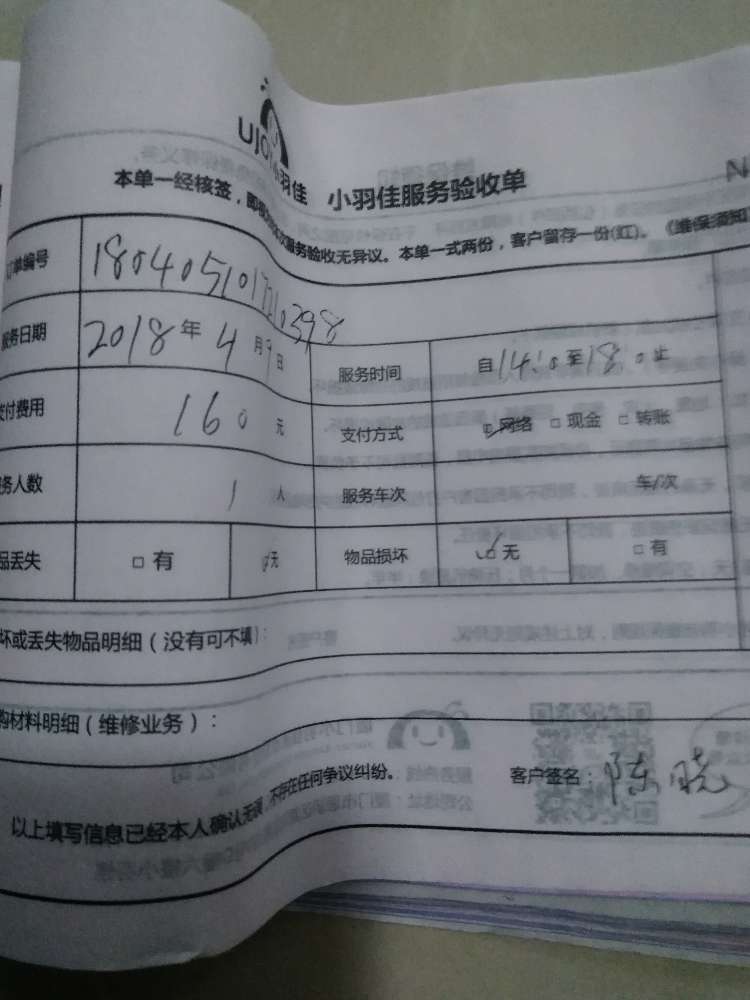 小羽佳 小羽佳服务验收单
本单一经核签，服务验收无异议。本单一式两份，客户留存一份(红)。《维保须知
单编号 180405101710398
服务日期 2018年4月9日 服务时间 自14:0至18:0止
支付费用 160元 支付方式 网络 □现金 □转账
务人数 1人 服务车次 车/次
品丢失 □有 无 物品损坏 无 □有
坏或丢失物品明细（没有可不填）：
购材料明细（维修业务）：
以上填写信息已经本人确认无误，不存在任何争议纠纷。 客户签名：陈晓